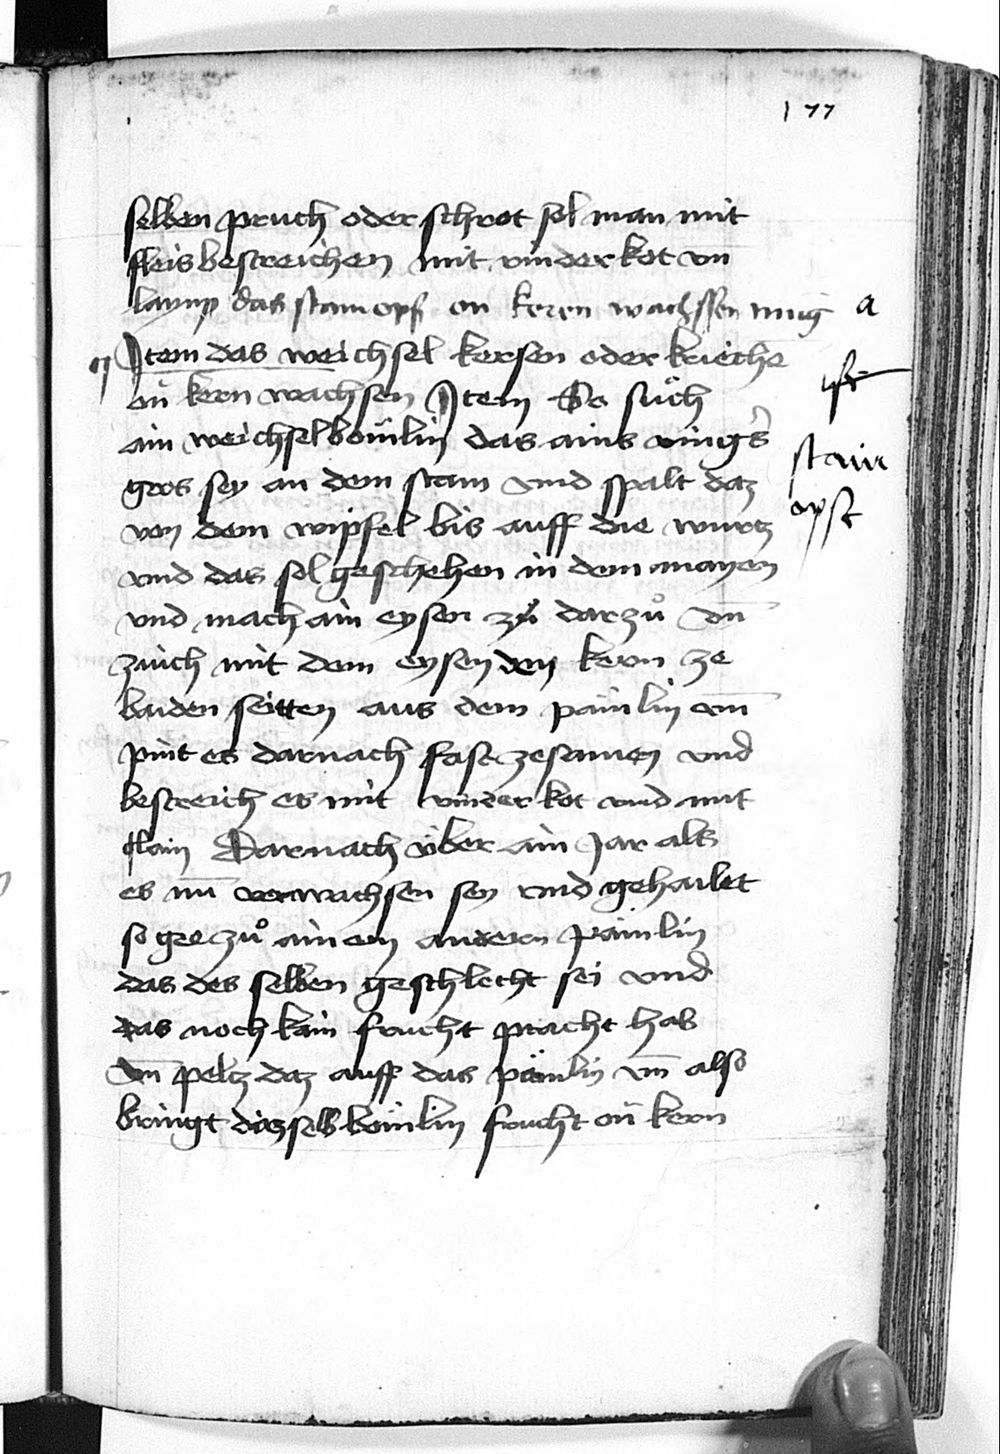 177
selben pruch oder schrot sol man mit
fleis bestreichen mit rinder kot vn̄
laymp das stam opf on keren wachssen mug a
Item das weichsel kersen oder krieche
on̄ kern wachsen Item So sůch
ist
ain weichselbömlin das ains ring̉s
stain
gros sey an dem stam vnd spalt daz
opst
von dem wipfel bis auff die wurtz
vnd das sol geschehen in dem mayen
vnd mach ain eysen zů darzů vn̄
zůich mit dem eysen den kern ze
baiden seitten aus dem pämlin vn̄
pint es darnach fast zesamen vnd
bestreich es mit rinder kot vnd mit
laim Darnach über ain Jar als
es nū verwachsen sey vnd gehailet
so gee zů ainem andern pämlin
das des selben geschlecht sei vnd
das noch kain frucht pracht hab
vn̄ peltz daz auff das pämlin vn̄ also
bringt das selb bömlin frucht on̄ kern